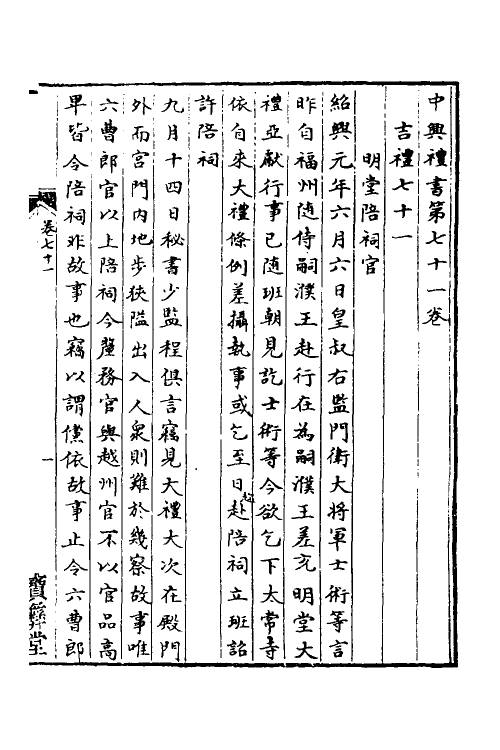 中興禮書第七十一卷
吉禮七十一
明堂陪祠官
紹興元年六月六日皇叔右監門衛大將軍士術等言
昨自福州隨侍嗣濮王赴行在為嗣濮王差充明堂大
禮亞獻行事已隨班朝見訖士術等今欲乞下太常寺
依自來大禮條例差攝執事或乞至日趂赴陪祠立班詔
許陪祠
九月十四日秘書少監程俱言竊見大禮大次在殿門
外而宮門内地步狹隘出入人衆則難於幾察故事唯
六曹郎官以上陪祠今釐務官與越州官不以官品高
卑皆令陪祠非故事也竊以謂儻依故事止令六曹郎
卷七十一
一
寶彝堂